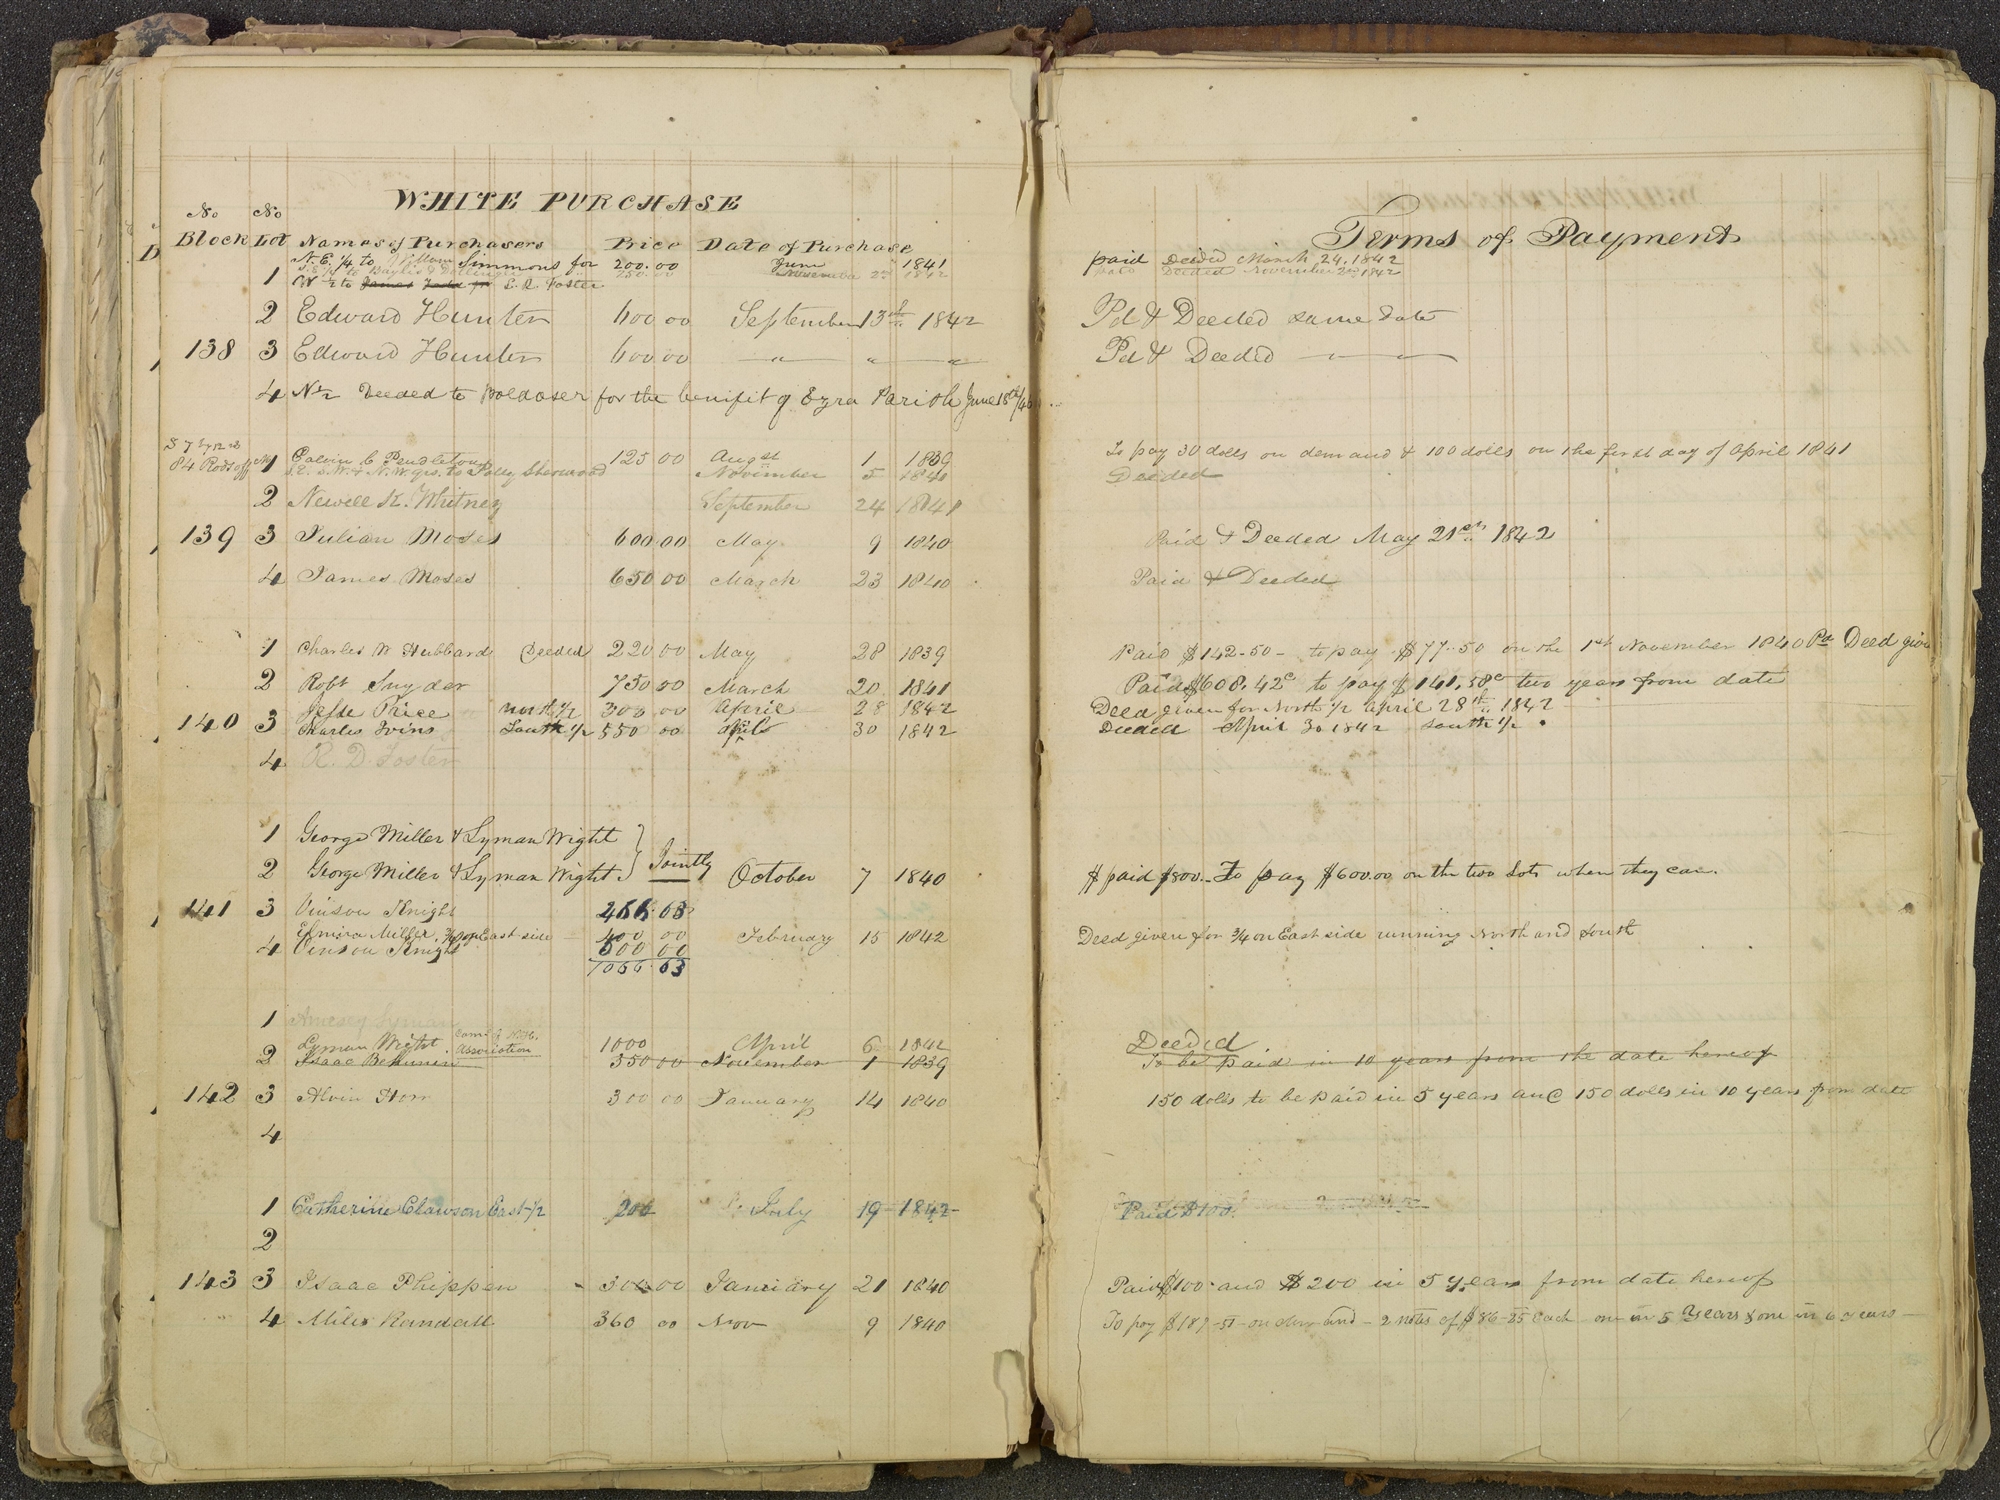 WHITE PURCHASE
No Block No Lot Names of Purchasers Price Date of Purchase
N.E. 1/4 to William Simmons for 200.00 June 1841
S.E. 1/4 to 250.00 November 2nd 1842
1 W 1/2 to James Todd jr L. R. Foster
2 Edward Hunter 600 00 September 13th 1842
138 3 Edward Hunter 600 00 — " — " — " —
4 N 1/2 Deeded to Boldoser for the benifit of Ezra Parish June 18th/46
84 Rods off
1 Calvin C Pendleton 125 00 August 1 1839
S.E. S.W. & N.W. qrs. to Polly Sherwood November 5 1841
2 Newell K. Whitney September 24 1841
139 3 Julian Moses 600.00 May 9 1840
4 James Moses 650 00 March 23 1840
1 Charles W Hubbard Deeded 220 00 May 28 1839
2 Robt Snyder 750 00 March 20 1841
Jesse Price north 1/2 300 00 April 28 1842
140 3 Charles Ivins South 1/2 550 00 April 30 1842
4 R. D. Foster
1 George Miller & Lyman Wight } Jointly
2 George Miller & Lyman Wight } October 7 1840
141 3 Vinson Knight 266.63
Elmira Miller, 3/4 off East side 400 00 February 15 1842
4 Vinson Knight 500 00
1066.63
1 Amasey Lyman
Lyman Wight Com. of N.H. Association 1000 April 6 1842
2 Isaac Behunin 350 00 November 1 1839
142 3 Alvin Horr 300 00 January 14 1840
4
1 Catherine Clawson East 1/2 200 July 19 1842
2
143 3 Isaac Phippen 300 00 January 21 1840
4 Miles Randall 360 00 Nov 9 1840
Terms of Payment
paid Deeded March 24, 1842
paid Deeded November 2nd 1842
Pd & Deeded same date
Pd & Deeded — " —
To pay 30 dolls on demand & 100 dolls on the first day of April 1841
Deeded
Paid & Deeded May 21st 1842
Paid & Deeded
Paid $142.50 - to pay $77.50 on the 1st November 1840 Pd Deed given
Paid $608,42c to pay $141,58c two years from date
Deed given for North 1/2 April 28th 1842
Deeded April 30 1842 South 1/2
$ paid $800.- To pay $600.00 on the two Lots when they can.
Deed given for 3/4 on East side running North and South
Deeded
To be paid in 10 years from the date hereof
150 dolls to be paid in 5 years and 150 dolls in 10 years from date
Paid $100.
Paid $100. and $200 in 5 years from date hereof
To pay $187-50 on demand - 2 notes of $86-25 each one in 5 Years & one in 6 years